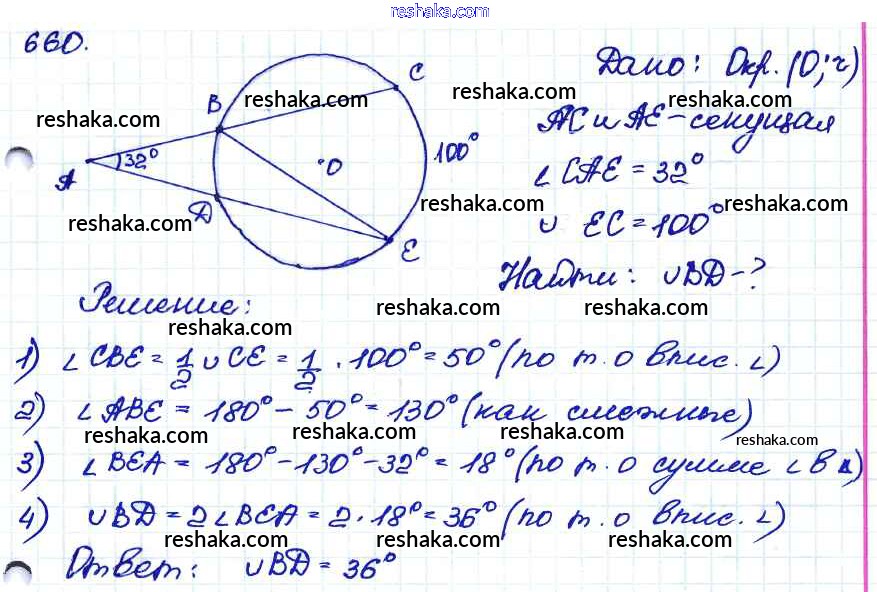 reshaka.com
660.
C
B
reshaka.com
reshaka.com
A
32°
O
100°
D
E
reshaka.com
Дано: Окр. (O; r)
reshaka.com
reshaka.com
AC и AE - секущая
∠CAE = 32°
reshaka.com
reshaka.com
∪ EC = 100°
Найти: ∪BD - ?
Решение:
reshaka.com
reshaka.com
reshaka.com
1) ∠CBE = 1/2 ∪CE = 1/2 · 100° = 50° (по т. о впис. ∠)
2) ∠ABE = 180° - 50° = 130° (как смежные)
reshaka.com
reshaka.com
reshaka.com
reshaka.com
3) ∠BEA = 180° - 130° - 32° = 18° (по т. о сумме ∠ в Δ)
4) ∪BD = 2∠BEA = 2 · 18° = 36° (по т. о впис. ∠)
reshaka.com
reshaka.com
reshaka.com
Ответ: ∪BD = 36°